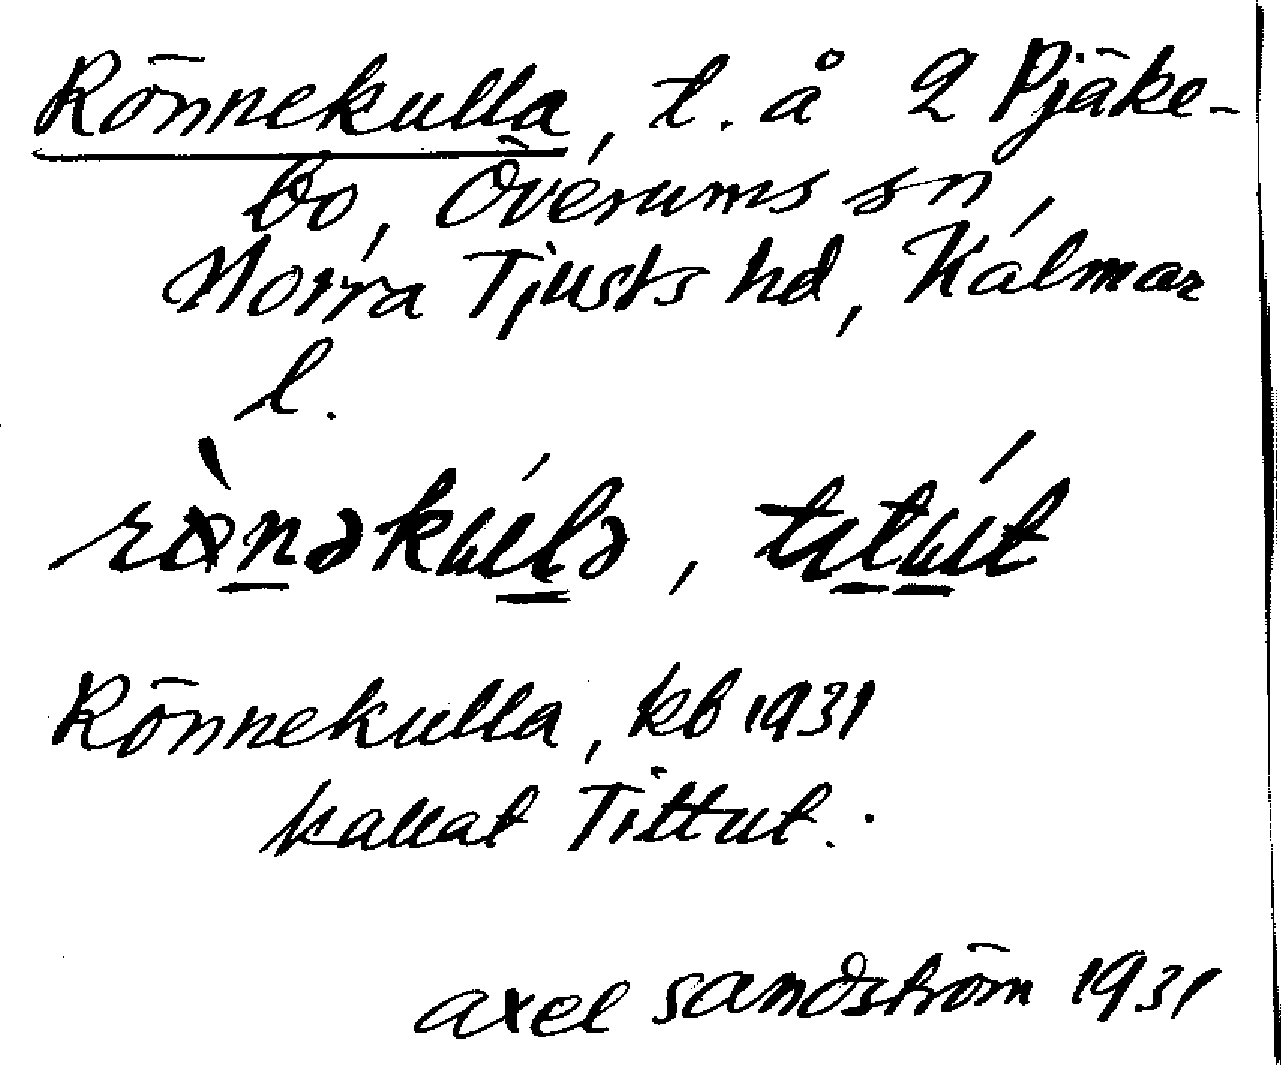 Rönnekulla, t. å 2 Pjäke-
bo, Överums sn,
Norra Tjusts hd, Kalmar
l.
rònəkúlə, titút
Rönnekulla, kb 1931
kallat Tittut.
axel sandström 1931